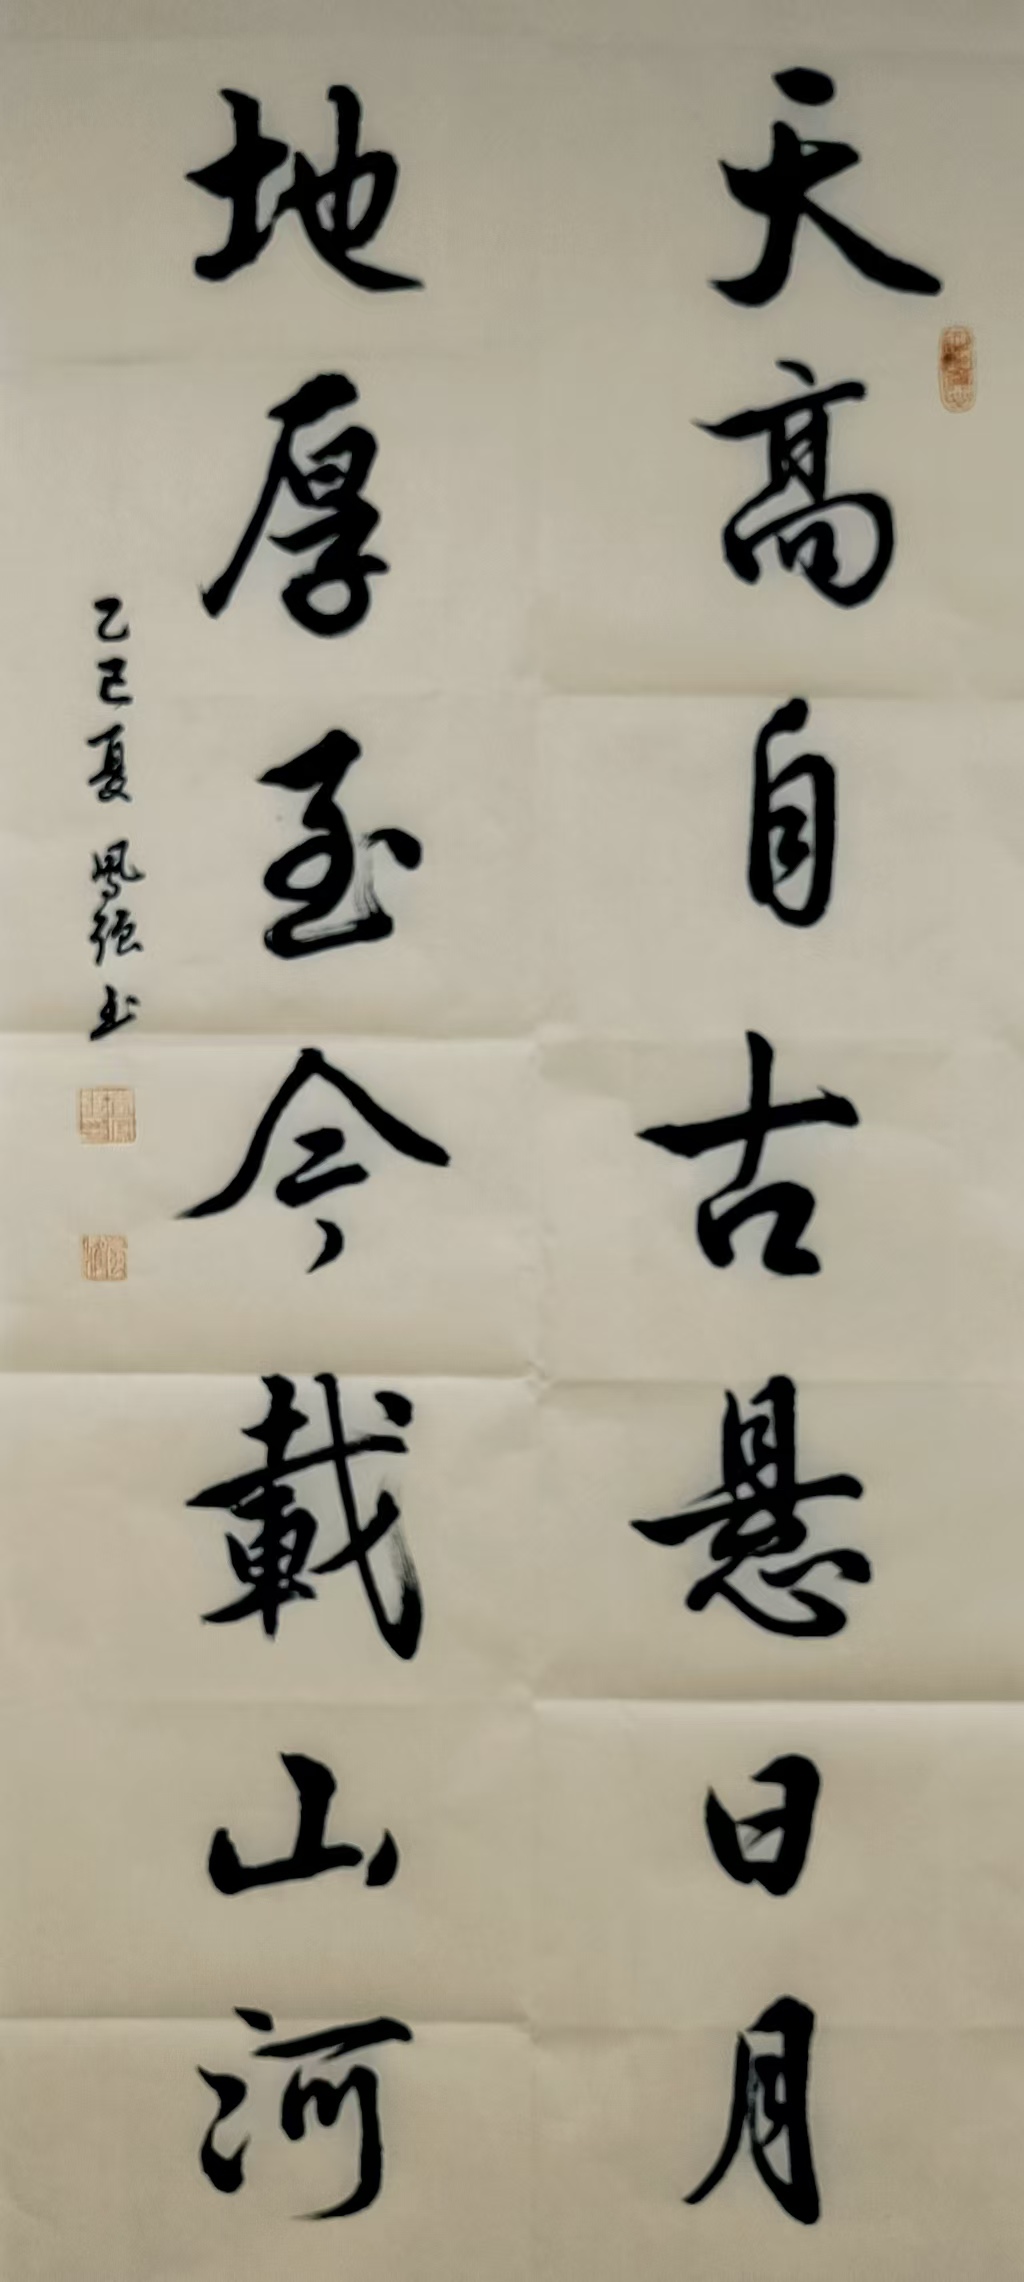 天高自古悬日月
地厚至今載山河
乙巳夏 鳳強书